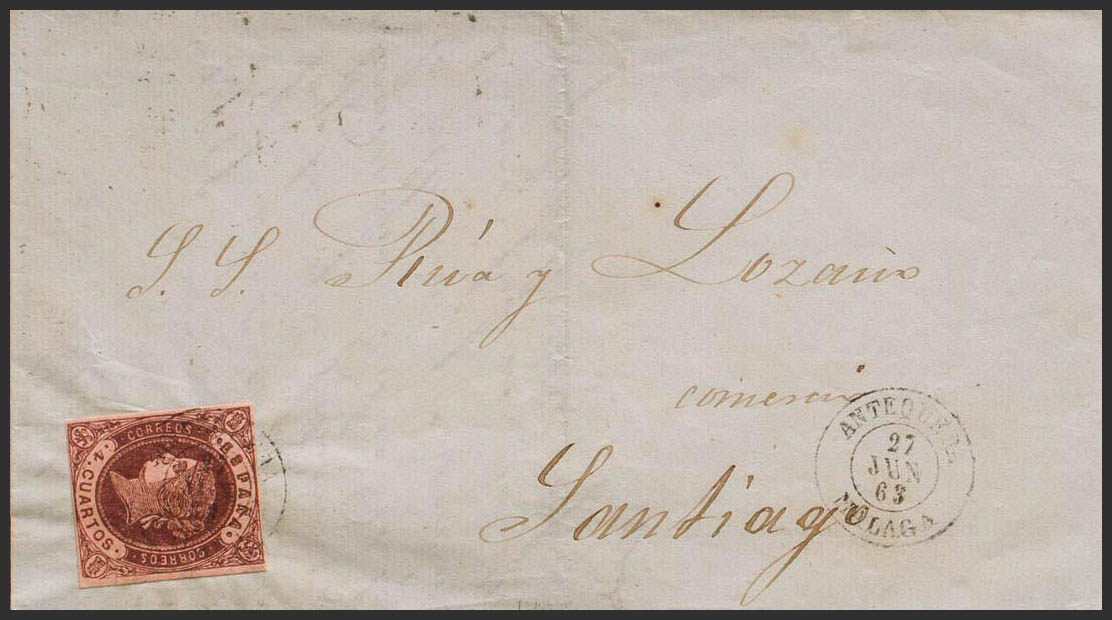 S. S. Rúa y Lozano
comercio
Santiago
ANTEQUERA
27
JUN
63
MALAGA
CORREOS
ESPAÑA.
4. CUARTOS.
CORREOS